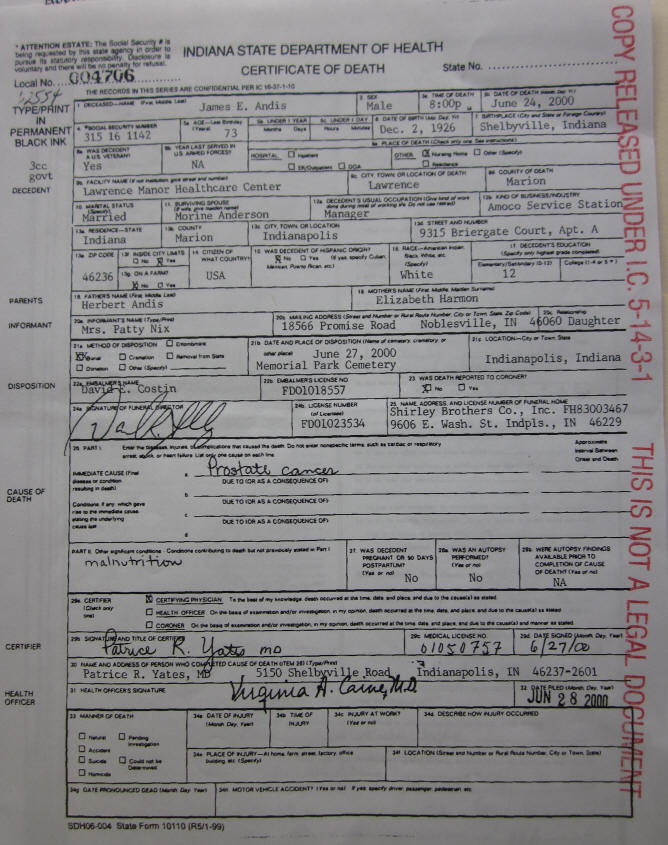 * ATTENTION ESTATE: The Social Security # is
being requested by this state agency in order to
pursue its statutory responsibility. Disclosure is
voluntary and there will be no penalty for refusal.
INDIANA STATE DEPARTMENT OF HEALTH
CERTIFICATE OF DEATH
Local No. 004706
State No.
THE RECORDS IN THIS SERIES ARE CONFIDENTIAL PER IC 16-37-1-10
TYPE/PRINT
IN
PERMANENT
BLACK INK
3cc
govt
1. DECEASED—NAME (First, Middle, Last)
James E. Andis
2. SEX
Male
3a. TIME OF DEATH
8:00p M
3b. DATE OF DEATH (Month, Day, Yr)
June 24, 2000
4. *SOCIAL SECURITY NUMBER
315 16 1142
5a. AGE—Last Birthday (Years)
73
5b. UNDER 1 YEAR
Months Days
5c. UNDER 1 DAY
Hours Minutes
6. DATE OF BIRTH (Month, Day, Yr)
Dec. 2, 1926
7. BIRTHPLACE (City and State or Foreign Country)
Shelbyville, Indiana
DECEDENT
8a. WAS DECEDENT A U.S. VETERAN?
Yes
8b. YEAR LAST SERVED IN U.S. ARMED FORCES?
NA
9a. PLACE OF DEATH (Check only one. See instructions)
HOSPITAL: Inpatient
ER/Outpatient DOA
OTHER: X Nursing Home Other (Specify)
Residence
9b. FACILITY NAME (If not institution, give street and number)
Lawrence Manor Healthcare Center
9c. CITY, TOWN OR LOCATION OF DEATH
Lawrence
9d. COUNTY OF DEATH
Marion
10. MARITAL STATUS (Specify)
Married
11. SURVIVING SPOUSE (If wife, give maiden name)
Morine Anderson
12a. DECEDENT'S USUAL OCCUPATION (Give kind of work done during most of working life. Do not use retired)
Manager
12b. KIND OF BUSINESS/INDUSTRY
Amoco Service Station
13a. RESIDENCE—STATE
Indiana
13b. COUNTY
Marion
13c. CITY, TOWN, OR LOCATION
Indianapolis
13d. STREET AND NUMBER
9315 Briergate Court, Apt. A
13e. ZIP CODE
46236
13f. INSIDE CITY LIMITS
No X Yes
13g. ON A FARM?
X No Yes
14. CITIZEN OF WHAT COUNTRY?
USA
15. WAS DECEDENT OF HISPANIC ORIGIN?
X No Yes (If yes, specify Cuban, Mexican, Puerto Rican, etc.)
16. RACE—American Indian, Black, White, etc. (Specify)
White
17. DECEDENT'S EDUCATION
(Specify only highest grade completed)
Elementary/Secondary (0-12) College (1-4 or 5+)
12
PARENTS
18. FATHER'S NAME (First, Middle, Last)
Herbert Andis
19. MOTHER'S NAME (First, Middle, Maiden Surname)
Elizabeth Harmon
INFORMANT
20a. INFORMANT'S NAME (Type/Print)
Mrs. Patty Nix
20b. MAILING ADDRESS (Street and Number or Rural Route Number, City or Town, State, Zip Code)
18566 Promise Road Noblesville, IN 46060
20c. Relationship
Daughter
DISPOSITION
21a. METHOD OF DISPOSITION Entombment
X Burial Cremation Removal from State
Donation Other (Specify)
21b. DATE AND PLACE OF DISPOSITION (Name of cemetery, crematory, or other place)
June 27, 2000
Memorial Park Cemetery
21c. LOCATION—City or Town, State
Indianapolis, Indiana
22a. EMBALMER'S NAME
David E. Costin
22b. EMBALMER'S LICENSE NO
FD01018557
23. WAS DEATH REPORTED TO CORONER?
X No Yes
24a. SIGNATURE OF FUNERAL DIRECTOR
24b. LICENSE NUMBER (of Licensee)
FD01023534
25. NAME, ADDRESS, AND LICENSE NUMBER OF FUNERAL HOME
Shirley Brothers Co., Inc. FH83003467
9606 E. Wash. St. Indpls., IN 46229
CAUSE OF
DEATH
26. PART I. Enter the diseases, injuries, or complications that caused the death. Do not enter nonspecific terms, such as cardiac or respiratory
arrest, shock, or heart failure. List only one cause on each line.
Approximate
Interval Between
Onset and Death
IMMEDIATE CAUSE (Final
disease or condition
resulting in death)
a. Prostate cancer
DUE TO (OR AS A CONSEQUENCE OF)
b.
DUE TO (OR AS A CONSEQUENCE OF)
Conditions, if any, which gave
rise to the immediate cause
stating the underlying
cause last
c.
DUE TO (OR AS A CONSEQUENCE OF)
d.
PART II. Other significant conditions - Conditions contributing to death but not previously stated in Part I
malnutrition
27. WAS DECEDENT PREGNANT OR 90 DAYS POSTPARTUM? (Yes or no)
No
28a. WAS AN AUTOPSY PERFORMED? (Yes or no)
No
28b. WERE AUTOPSY FINDINGS AVAILABLE PRIOR TO COMPLETION OF CAUSE OF DEATH? (Yes or no)
NA
CERTIFIER
29a. CERTIFIER (Check only one)
X CERTIFYING PHYSICIAN To the best of my knowledge, death occurred at the time, date, and place, and due to the cause(s) as stated.
HEALTH OFFICER On the basis of examination and/or investigation, in my opinion, death occurred at the time, date, and place, and due to the cause(s) as stated.
CORONER On the basis of examination and/or investigation, in my opinion, death occurred at the time, date, and place, and due to the cause(s) and manner as stated.
29b. SIGNATURE AND TITLE OF CERTIFIER
Patrice R. Yates MD
29c. MEDICAL LICENSE NO
01050757
29d. DATE SIGNED (Month, Day, Year)
6/27/00
30. NAME AND ADDRESS OF PERSON WHO COMPLETED CAUSE OF DEATH (ITEM 26) (Type/Print)
Patrice R. Yates, MD 5150 Shelbyville Road Indianapolis, IN 46237-2601
HEALTH
OFFICER
31. HEALTH OFFICER'S SIGNATURE
Virginia A. Caine, M.D.
32. DATE FILED (Month, Day, Year)
JUN 28 2000
33. MANNER OF DEATH
Natural Pending Investigation
Accident
Suicide Could not be Determined
Homicide
34a. DATE OF INJURY (Month, Day, Year)
34b. TIME OF INJURY
34c. INJURY AT WORK? (Yes or no)
34d. DESCRIBE HOW INJURY OCCURRED
34e. PLACE OF INJURY—At home, farm, street, factory, office building, etc. (Specify)
34f. LOCATION (Street and Number or Rural Route Number, City or Town, State)
34g. DATE PRONOUNCED DEAD (Month, Day, Year)
34h. MOTOR VEHICLE ACCIDENT? (Yes or no) If yes, specify driver, passenger, pedestrian, etc.
SDH06-004 State Form 10110 (R5/1-99)
COPY RELEASED UNDER I.C. 5-14-3-1 THIS IS NOT A LEGAL DOCUMENT